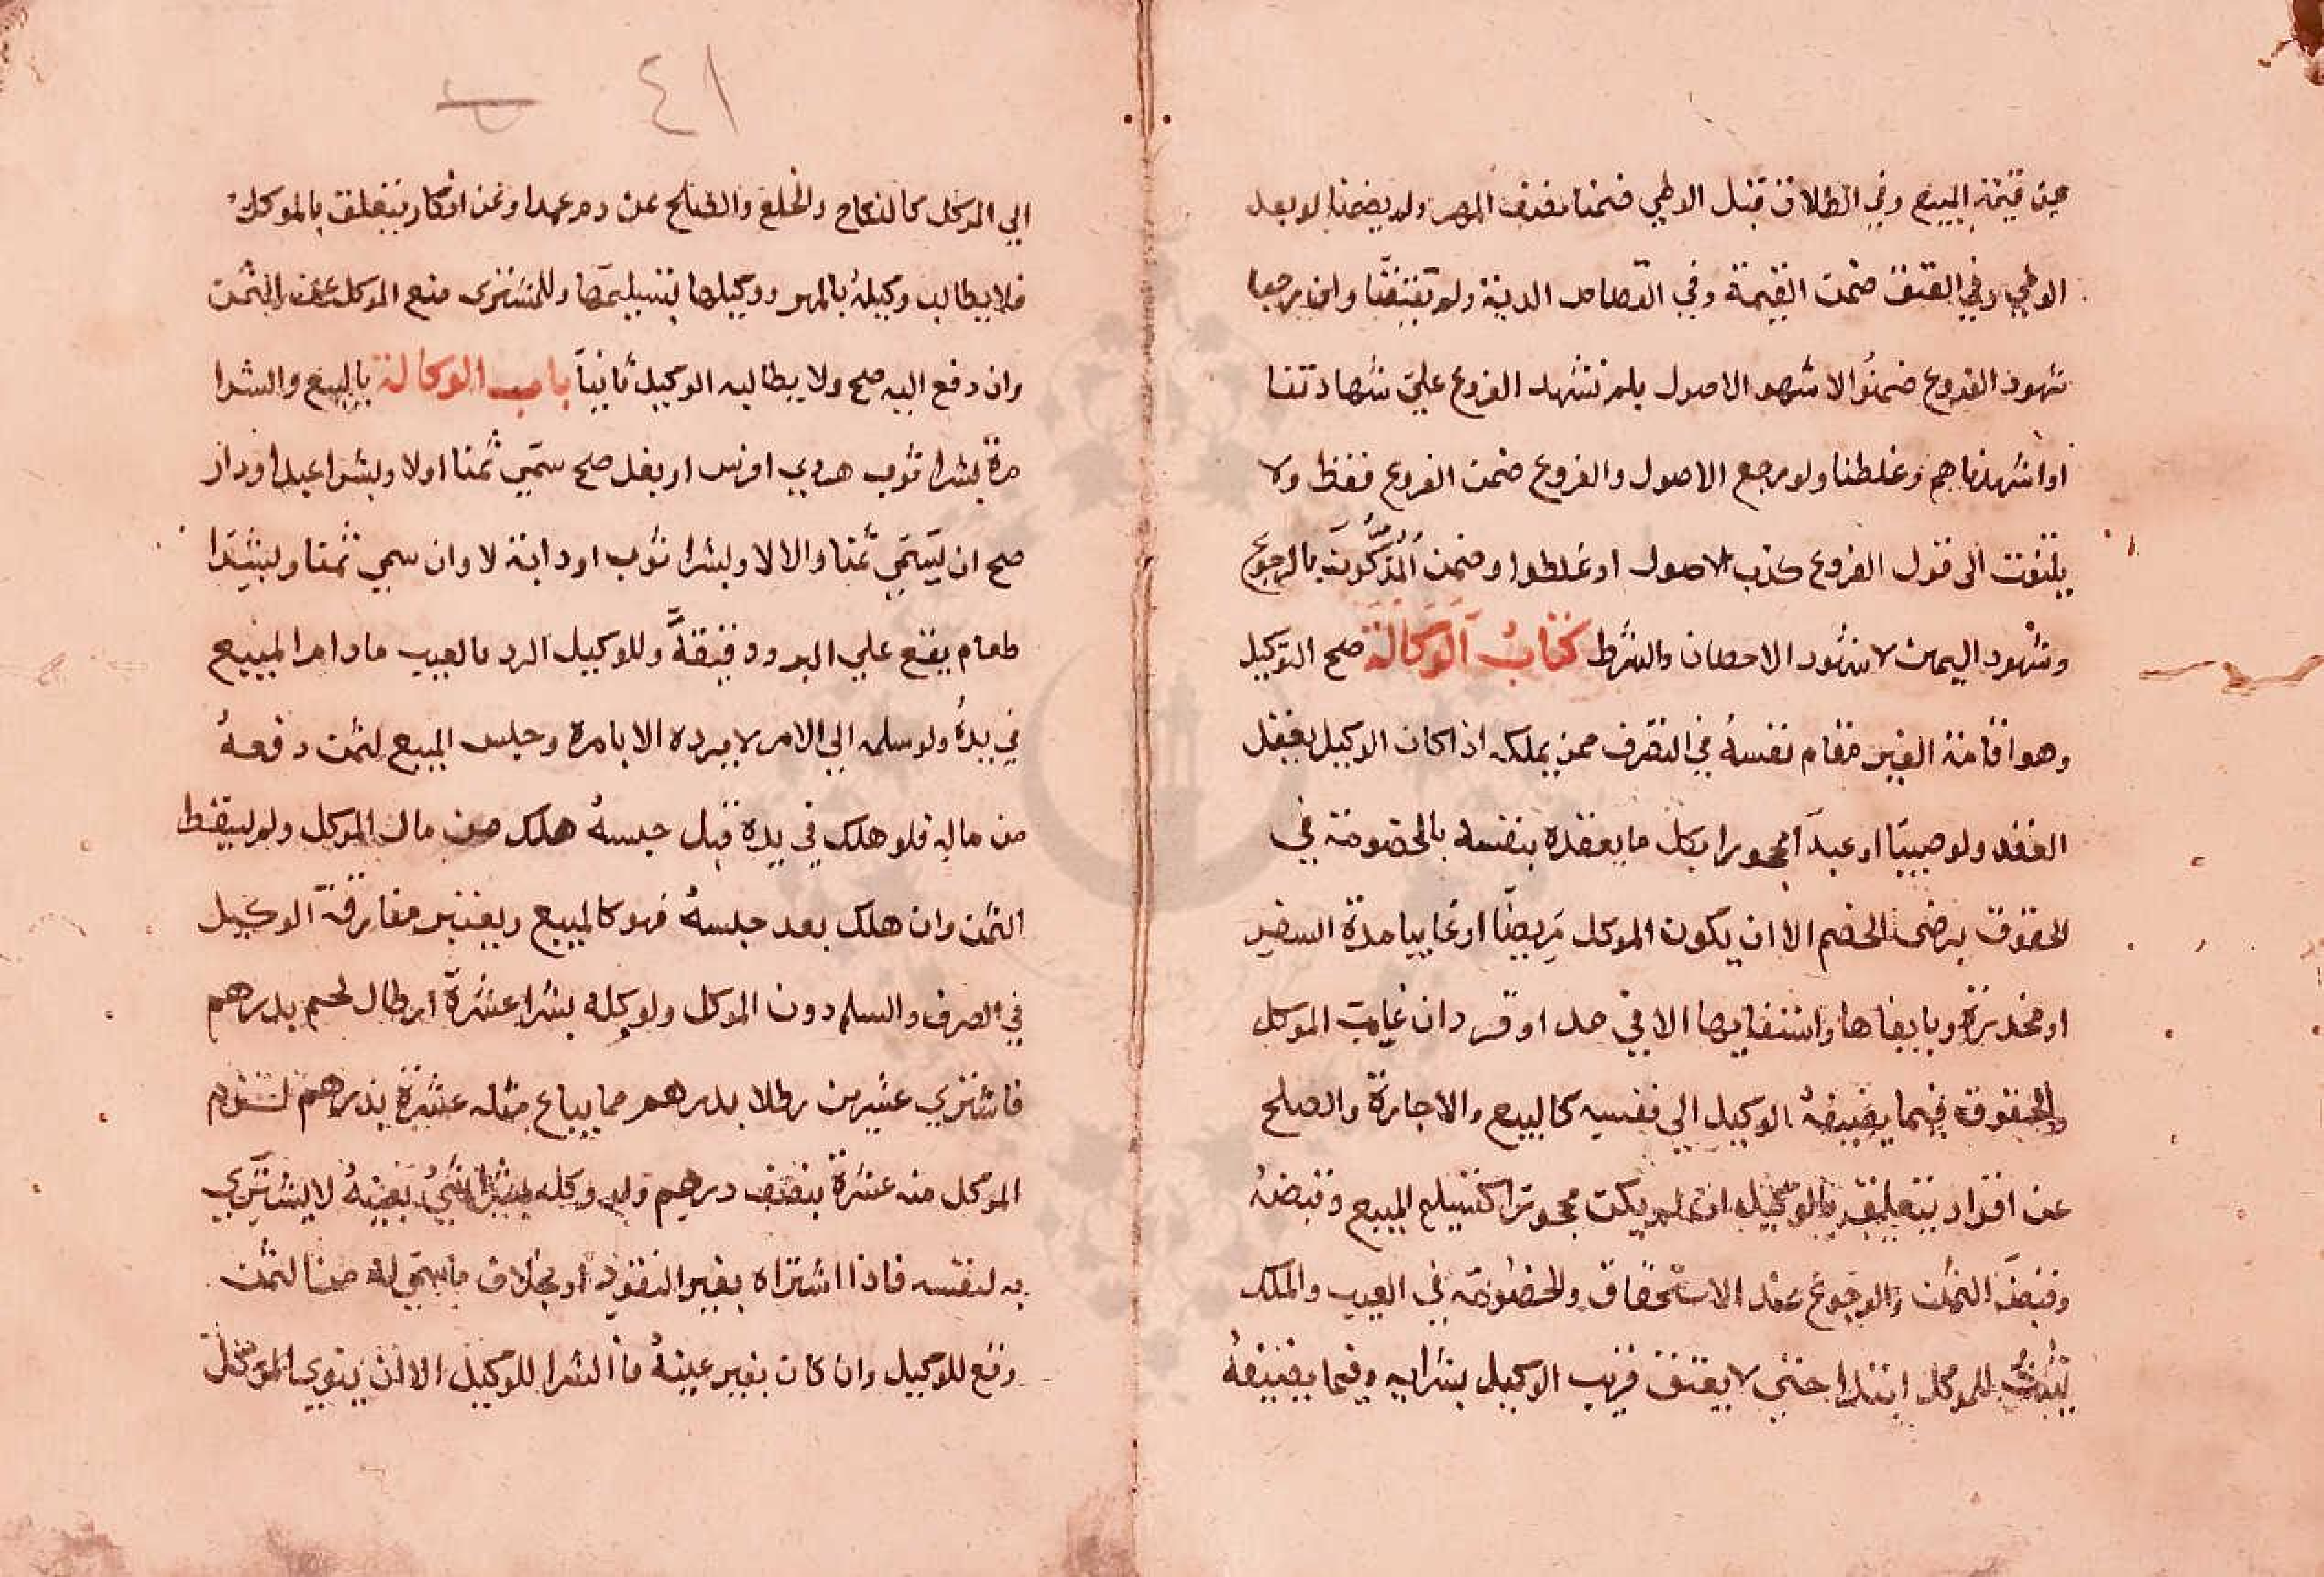 عن قيمة المبيع وفي الطلاق قبل الوطي ضمنا نصف المهر ولم يضمنا لو بعد
الوطي وفي العتق ضمن القيمة وفي القصاص الدية ولم يقتصا وان رجعا
شهود الفروع ضمنوا لا شهود الاصول بلم نشهد الفروع علي شهادتنا
او اشهدناهم وغلطنا ولو رجع الاصول والفروع ضمن الفروع فقط ولا
يلتفت الى قول الفروع كذب الاصول او غلطوا وضمن المزكون بالرجوع
وشهود اليمين لا شهود الاحصان والشرط كتاب الوكالة صح التوكيل
وهو اقامة الغير مقام نفسه في التصرف ممن يملكه اذا كان الوكيل يعقل
العقد ولو صبيا او عبدا محجورا بكل ما يعقده بنفسه بالخصومة في
الحقوق برضى الخصم الا ان يكون الموكل مريضا او غايبا مدة السفر
او مخدرة وبايفاها واستيفايها الا في حد او قود ان غاب الموكل
والحقوق فيما يضيفه الوكيل الي نفسه كالبيع والاجارة والصلح
عن اقرار يتعلق بالوكيل ان لم يكن محجورا كتسليم المبيع وقبضه
وقبض الثمن والرجوع عند الاستحقاق والخصومة في العيب والملك
يثبت للموكل ابتدا حتى لا يعتق قريب الوكيل بشرايه وفيما يضيفه
٤١
الي الموكل كالنكاح والخلع والصلح عن دم عمد او عن انكار يتعلق بالموكل
فلا يطالب وكيله بالمهر ووكيلها بتسليمها وللمشتري منع الموكل عن الثمن
وان دفع اليه صح ولا يطالبه الوكيل ثانيا باب الوكالة بالبيع والشرا
مرة بشرا ثوب هروي او فرس او بغل صح سمي ثمنا او لا وبشرا عبد او دار
صح ان يسمي ثمنا والا لا وبشرا ثوب او دابة لا وان سمي ثمنا وبشرا
طعام يقع علي البر ودقيقه وللوكيل الرد بالعيب ما دام المبيع
في يده ولو سلمه الي الامر لا يرده الا بامره وحبس المبيع لثمن دفعه
من ماله فلو هلك في يده قبل حبسه هلك من مال الموكل ولم يسقط
الثمن وان هلك بعد حبسه فهو كالمبيع ويعتبر مفارقة الوكيل
في الصرف والسلم دون الموكل ولو وكله بشرا عشرة ارطال لحم بدرهم
فاشتري عشرين رطلا بدرهم مما يباع مثله عشرة بدرهم لزم
الموكل منه عشرة بنصف درهم ولو وكله بشرا شي بعينه لا يشتري
به لنفسه فاذا اشتراه بغير النقود او بخلاف ما سمى له من الثمن
وقع للوكيل وان كان بغير عينه فالشرا للوكيل الا ان ينوي الموكل